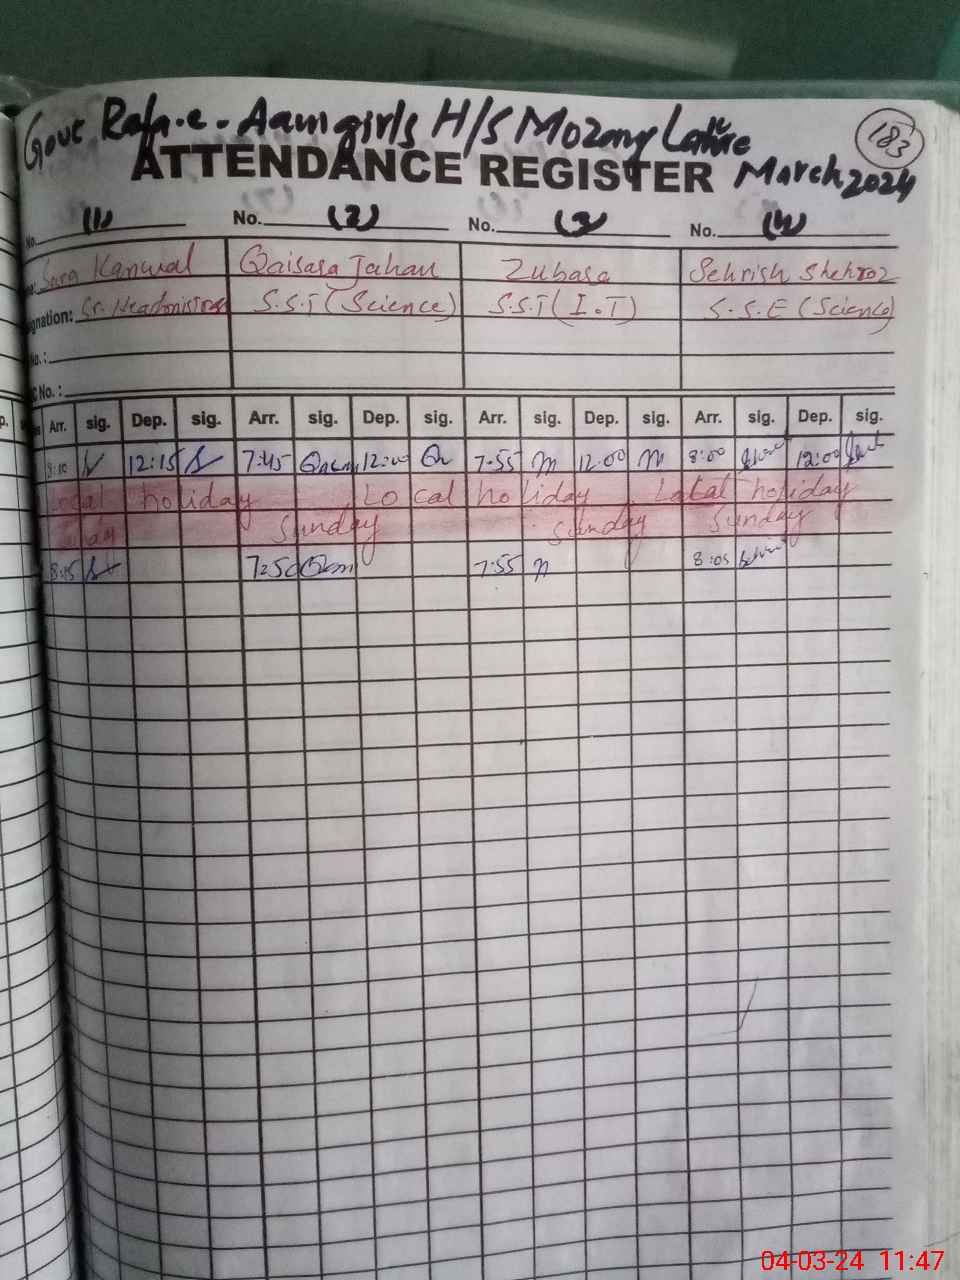 Govt Rafa.e. Aam girls H/S Mozang Lahore
183
ATTENDANCE REGISTER March 2024
No. (1) No. (2) No. (3) No. (4)
Sara Kanwal Qaisara Jahan Zubara Sehrish Shehroz
gnation: Sr. Headmistress S.S.T (Science) S.S.T (I.T) S.S.E (Science)
No. :
C No. :
Arr. sig. Dep. sig. Arr. sig. Dep. sig. Arr. sig. Dep. sig. Arr. sig. Dep. sig.
8:10 12:15 7:45 12:00 7:55 12:00 8:00 12:00
Local holiday Local holiday Local holiday
Sunday Sunday Sunday
8:15 7:50 7:55 8:05
04-03-24 11:47